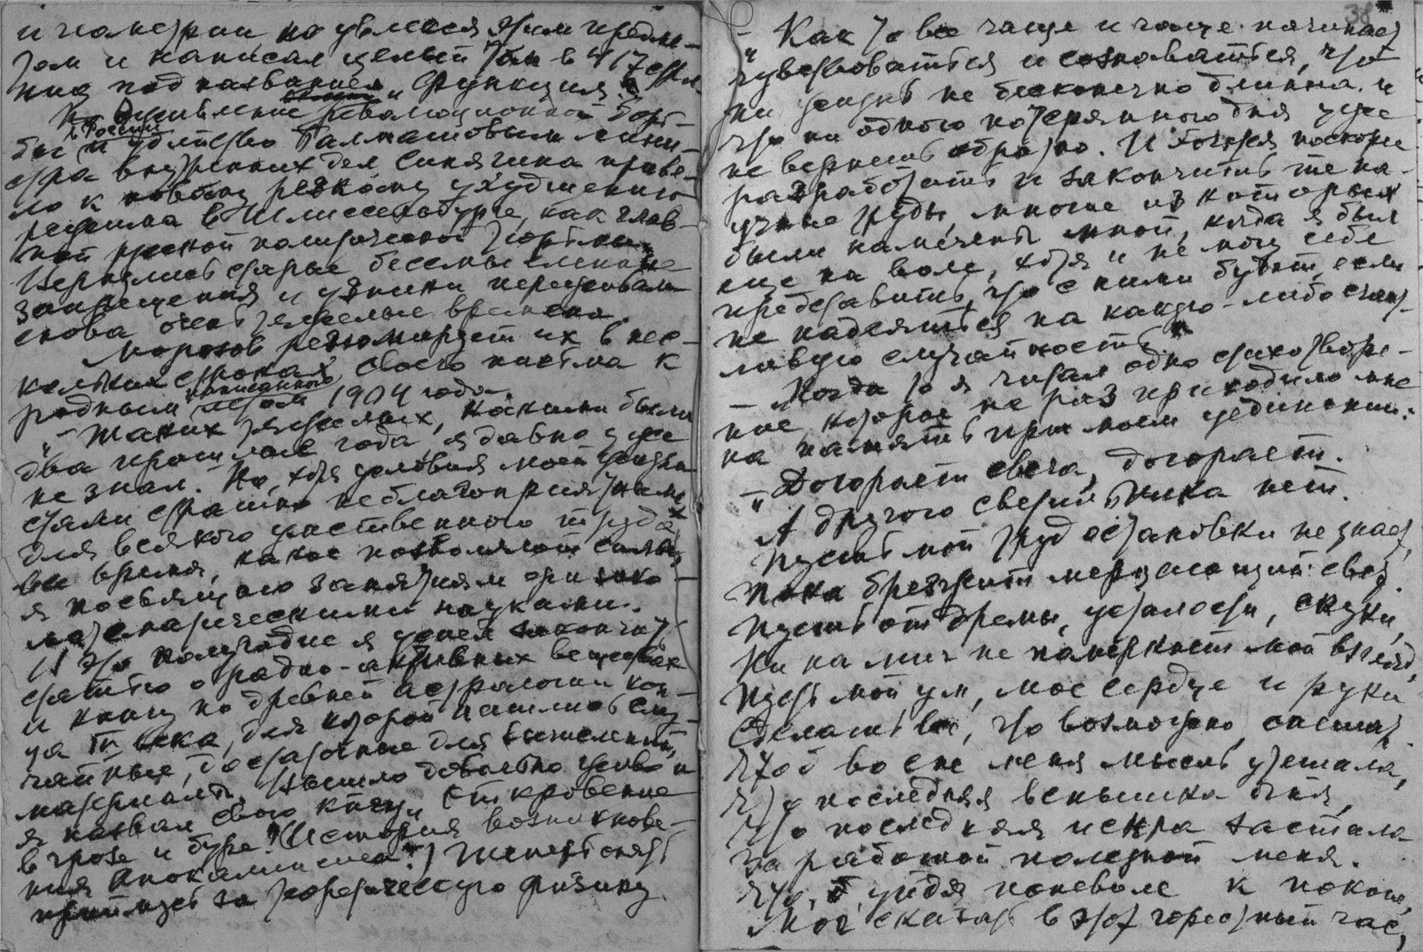 и геометрии но увлекся этим предме-
том и написал целый том в 417 стра-
ниц под названием „Функция“.
Но оживление революционной борь-
бы в России и убийство Балмашовым мини-
стра внутренних дел Сипягина приве-
ло к новому резкому ухудшению
режима в Шлиссельбурге, как глав-
ной русской политической тюрьмы.
Вернулись старые бессмысленные
запрещения и узники переживали
снова очень тяжелые времена.
Морозов резюмирует их в нес-
кольких строках своего письма к
родным, написанного летом 1904 года.
„— Таких тяжелых, какими были
два прошлые года, я давно уже
не знал. Но, хотя условия моей жизни
стали страшно неблагоприятными
для всякого умственного труда,
все время, какое позволяют силы,
я посвящаю занятиям физико-
математическими науками.
В это полугодие я успел закончить
статью о радио-активных веществах
и книгу по древней астрологии кон-
ца IV века, для которой нашлись слу-
чайные, достаточные для вычислений,
материалы. Вышло довольно живо и
я назвал свою книгу „Откровение
в грозе и буре“ (История возникнове-
ния Апокалипсиса.) Теперь опять
примусь за теоретическую физику
38
— Как-то все чаще и чаще начинает
чувствоваться и сознаваться, что
жизнь не бесконечно длинна и
что ни одного потерянного дня уже
не вернешь обратно. И хочется поскорее
разработать и закончить те на-
учные труды, многие из которых
были намечены мной, когда я был
еще на воле, хотя и не могу себе
представить, что с ними будет, если
не надеяться на какую-либо счаст-
ливую случайность.
— Когда-то я читал одно стихотворе-
ние, которое не раз приходило мне
на память при моем уединении:
— „Догорает свеча, догорает.
А другого светильника нет.
Пусть мой труд остановки не знает,
Пока брезжит мерцающий свет.
Пусть от дремы, усталости, скуки,
Ни на миг не померкнет мой взгляд,
Пусть мой ум, мое сердце и руки
Сделать все, что возможно, спешат,
Чтоб во сне меня мысль утешала,
Что последняя вспышка огня,
Что последняя искра застала
За работой полезной меня.
Что, уйдя поневоле к покою,
Мог сказать в этот горестный час,